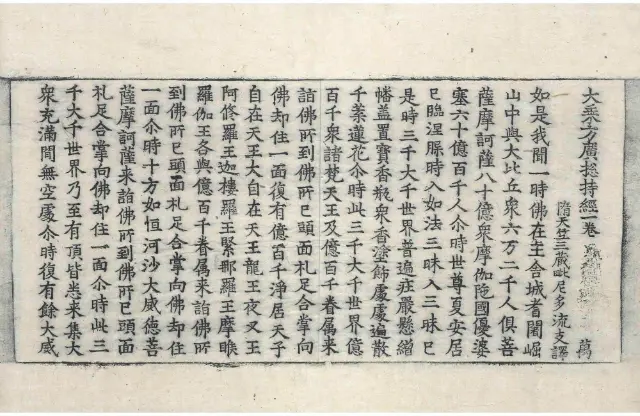 大乘方廣捴持經一卷 萬
隋天竺三藏毗尼多流支譯
如是我聞一時佛在王舍城耆闍崛
山中與大比丘衆六万二千人俱菩
薩摩訶薩八十億衆摩伽陁國優婆
塞六十億百千人尒時世尊夏安居
已臨涅槃時入如法三昧入三昧已
是時三千大千世界普遍莊嚴懸繒
幡盖置寶香瓶衆香塗飾處處遍散
千葉蓮花尒時此三千大千世界億
百千衆諸梵天王及億百千眷属来
詣佛所到佛所已頭面礼足合掌向
佛却住一面復有億百千淨居天子
自在天王大自在天王龍王夜叉王
阿修羅王迦樓羅王緊那羅王摩睺
羅伽王各與億百千眷属来詣佛所
到佛所已頭面礼足合掌向佛却住
一面尒時十方如恒河沙大威德菩
薩摩訶薩来詣佛所到佛所已頭面
礼足合掌向佛却住一面尒時此三
千大千世界乃至有頂皆悉来集大
衆充滿間無空處尒時復有餘大威